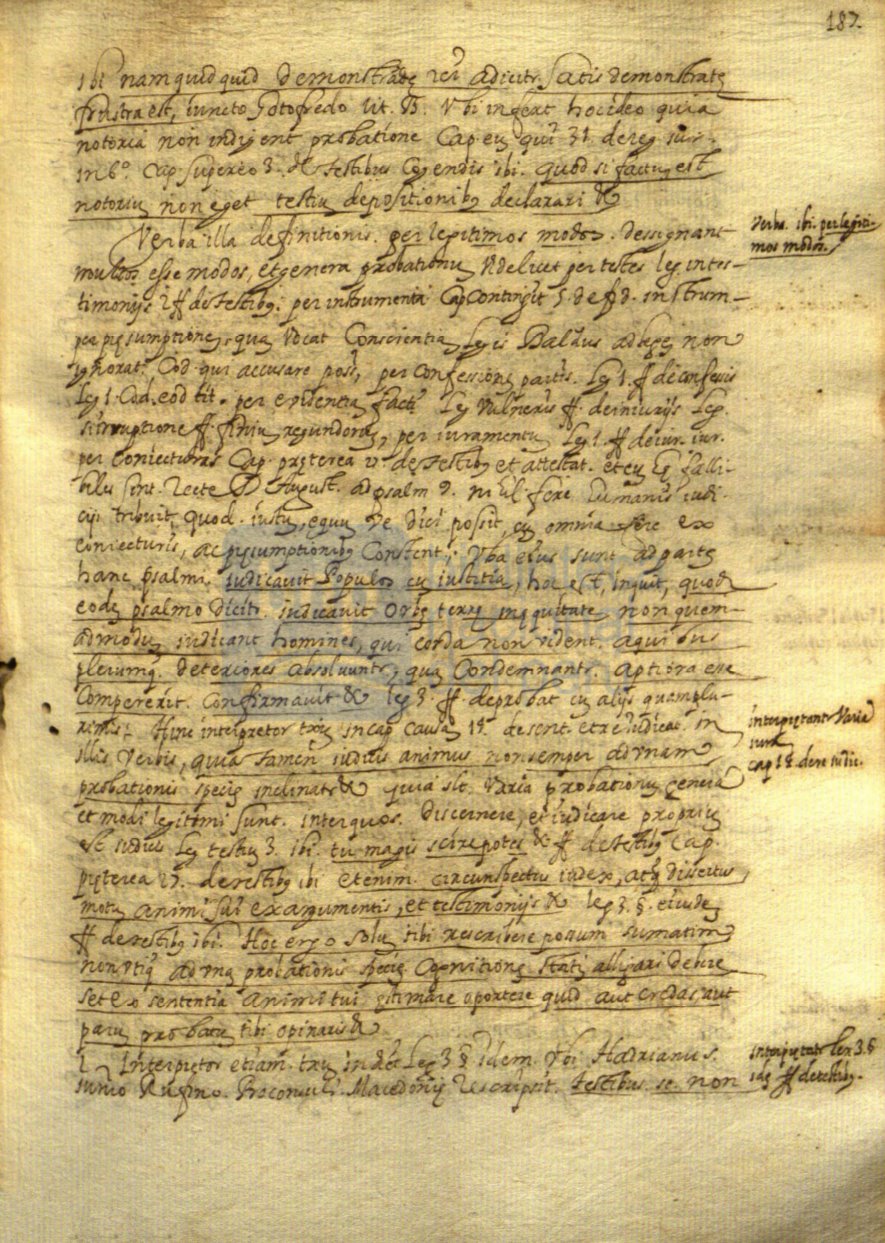 187.
ibi nam quidquid demonstratę rei additr. satis demonstratę
frustra est, iuncto Gotofredo lit. B. Vbi infert hoc ideo quia
notoria non indigent probatione Cap. eu qui 31 de reg iur.
in 6º. Cap. super eo 3. de testibus cogendis ibi. quod si factu est
notoriu non eget testiu depositionibꝯ declarari &
Verba illa definitionis. per legitimos modos. dessignant
Verba. ibi. per legiti-
mos modos.
multos esse modos, et genera probationu Videlicet per testes leg. in tes-
timonijs ff de testibꝯ. per instrumenta Cap Contingit 5. de fid. instrum-
per pręsumptione, qua Vocat Conscientia Legis Baldus ad lege non
ignorat. Cod qui accusare poss, per Confessione partis. Leg 1. ff de confessis
Leg 1. Cod. eod tit. per evidentia facti Leg Vulneris ff. de iniurijs Leg.
si irruptione ff. finiu regundoru, per iuramentu Leg 1. ff de iur. iur.
per coniecturas Cap. pręterea 27 de testibꝯ et attestat. et eu falli-
biles sint. recte D August. ad psalm 9. nihil fere humanis iudi-
cijs tribuit, quod. iustu, equu Ve dici possit, cu omnia fere ex
coniecturis, ac pręsumptionibꝯ Constent; Vba eius sunt ad parte
hanc psalmi. iudicavit Populos cu iustitia, hoc est, inquit, quod
eode psalmo dicit. iudicavit Orbe terrę in ęquitate non quem-
admodu iudicant homines, qui corda non vident. a quibus
plerumqꝫ. deteriores absolvunt, qua Condemnant. aptiora esse
Compererit. Confirmavit & leg 3. ff. de probat cu alijs quamplu-
rimis; Hinc interpretor in cap. causa 18. de sent. et re iudicat. in
interpretantr Varia
iura
cap 18. de re iudic.
illis Verbis, quia tamen iudicis animus non semper ad vnam
probationis specie inclinatr & quia slt. Varia probationu genera
et modi legitimi sunt. inter quos. Discernere, et iudicare propriu
est iudicis Leg testiu 3. ibi. tu magis scire potes & ff de testibꝯ Cap.
pręterea 27. de testibꝯ ibi et enim. circunspectus iudex, atqꝫ discretus
motu animi sui ex argumentis, et testimonijs & leg 3. §. eiusde
ff de testibꝯ ibi. Hoc ergo solu tibi rescribere possum summatim
non vtiqꝫ ad vna probationis specie Cognitione stati alligari debere
set ex sententia animi tui ęstimare oportere quid aut credas, aut
paru probatu tibi opinaris &
Interpretor etiam. in dict Leg 3 § idem. Vbi Hadrianus.
interpretatr lex 3. §
ide ff de testibꝯ.
iunio Rufino. Proconsuli. Macedonię rescripsit. testibus. se. non